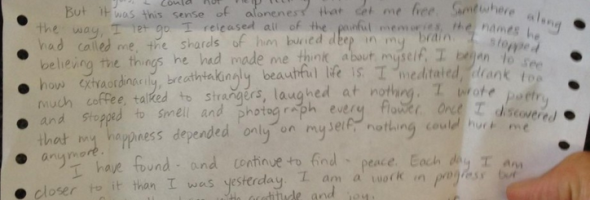 could not help
But it was this sense of aloneness that set me free. Somewhere along
the way, I let go. I released all of the painful memories, the names he
had called me, the shards of him buried deep in my brain. I stopped
believing the things he had made me think about myself. I began to see
how extraordinarily, breathtakingly beautiful life is. I meditated, drank too
much coffee, talked to strangers, laughed at nothing. I wrote poetry
and stopped to smell and photograph every flower. Once I discovered
that my happiness depended only on myself, nothing could hurt me
anymore.
I have found - and continue to find - peace. Each day I am
closer to it than I was yesterday. I am a work in progress but
with gratitude and joy.